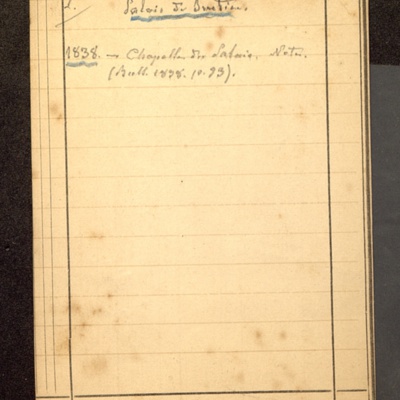 1.
Palais de Justice.
1838. — Chapelle du Palais. Note.
(Bull. 1838. p. 93).